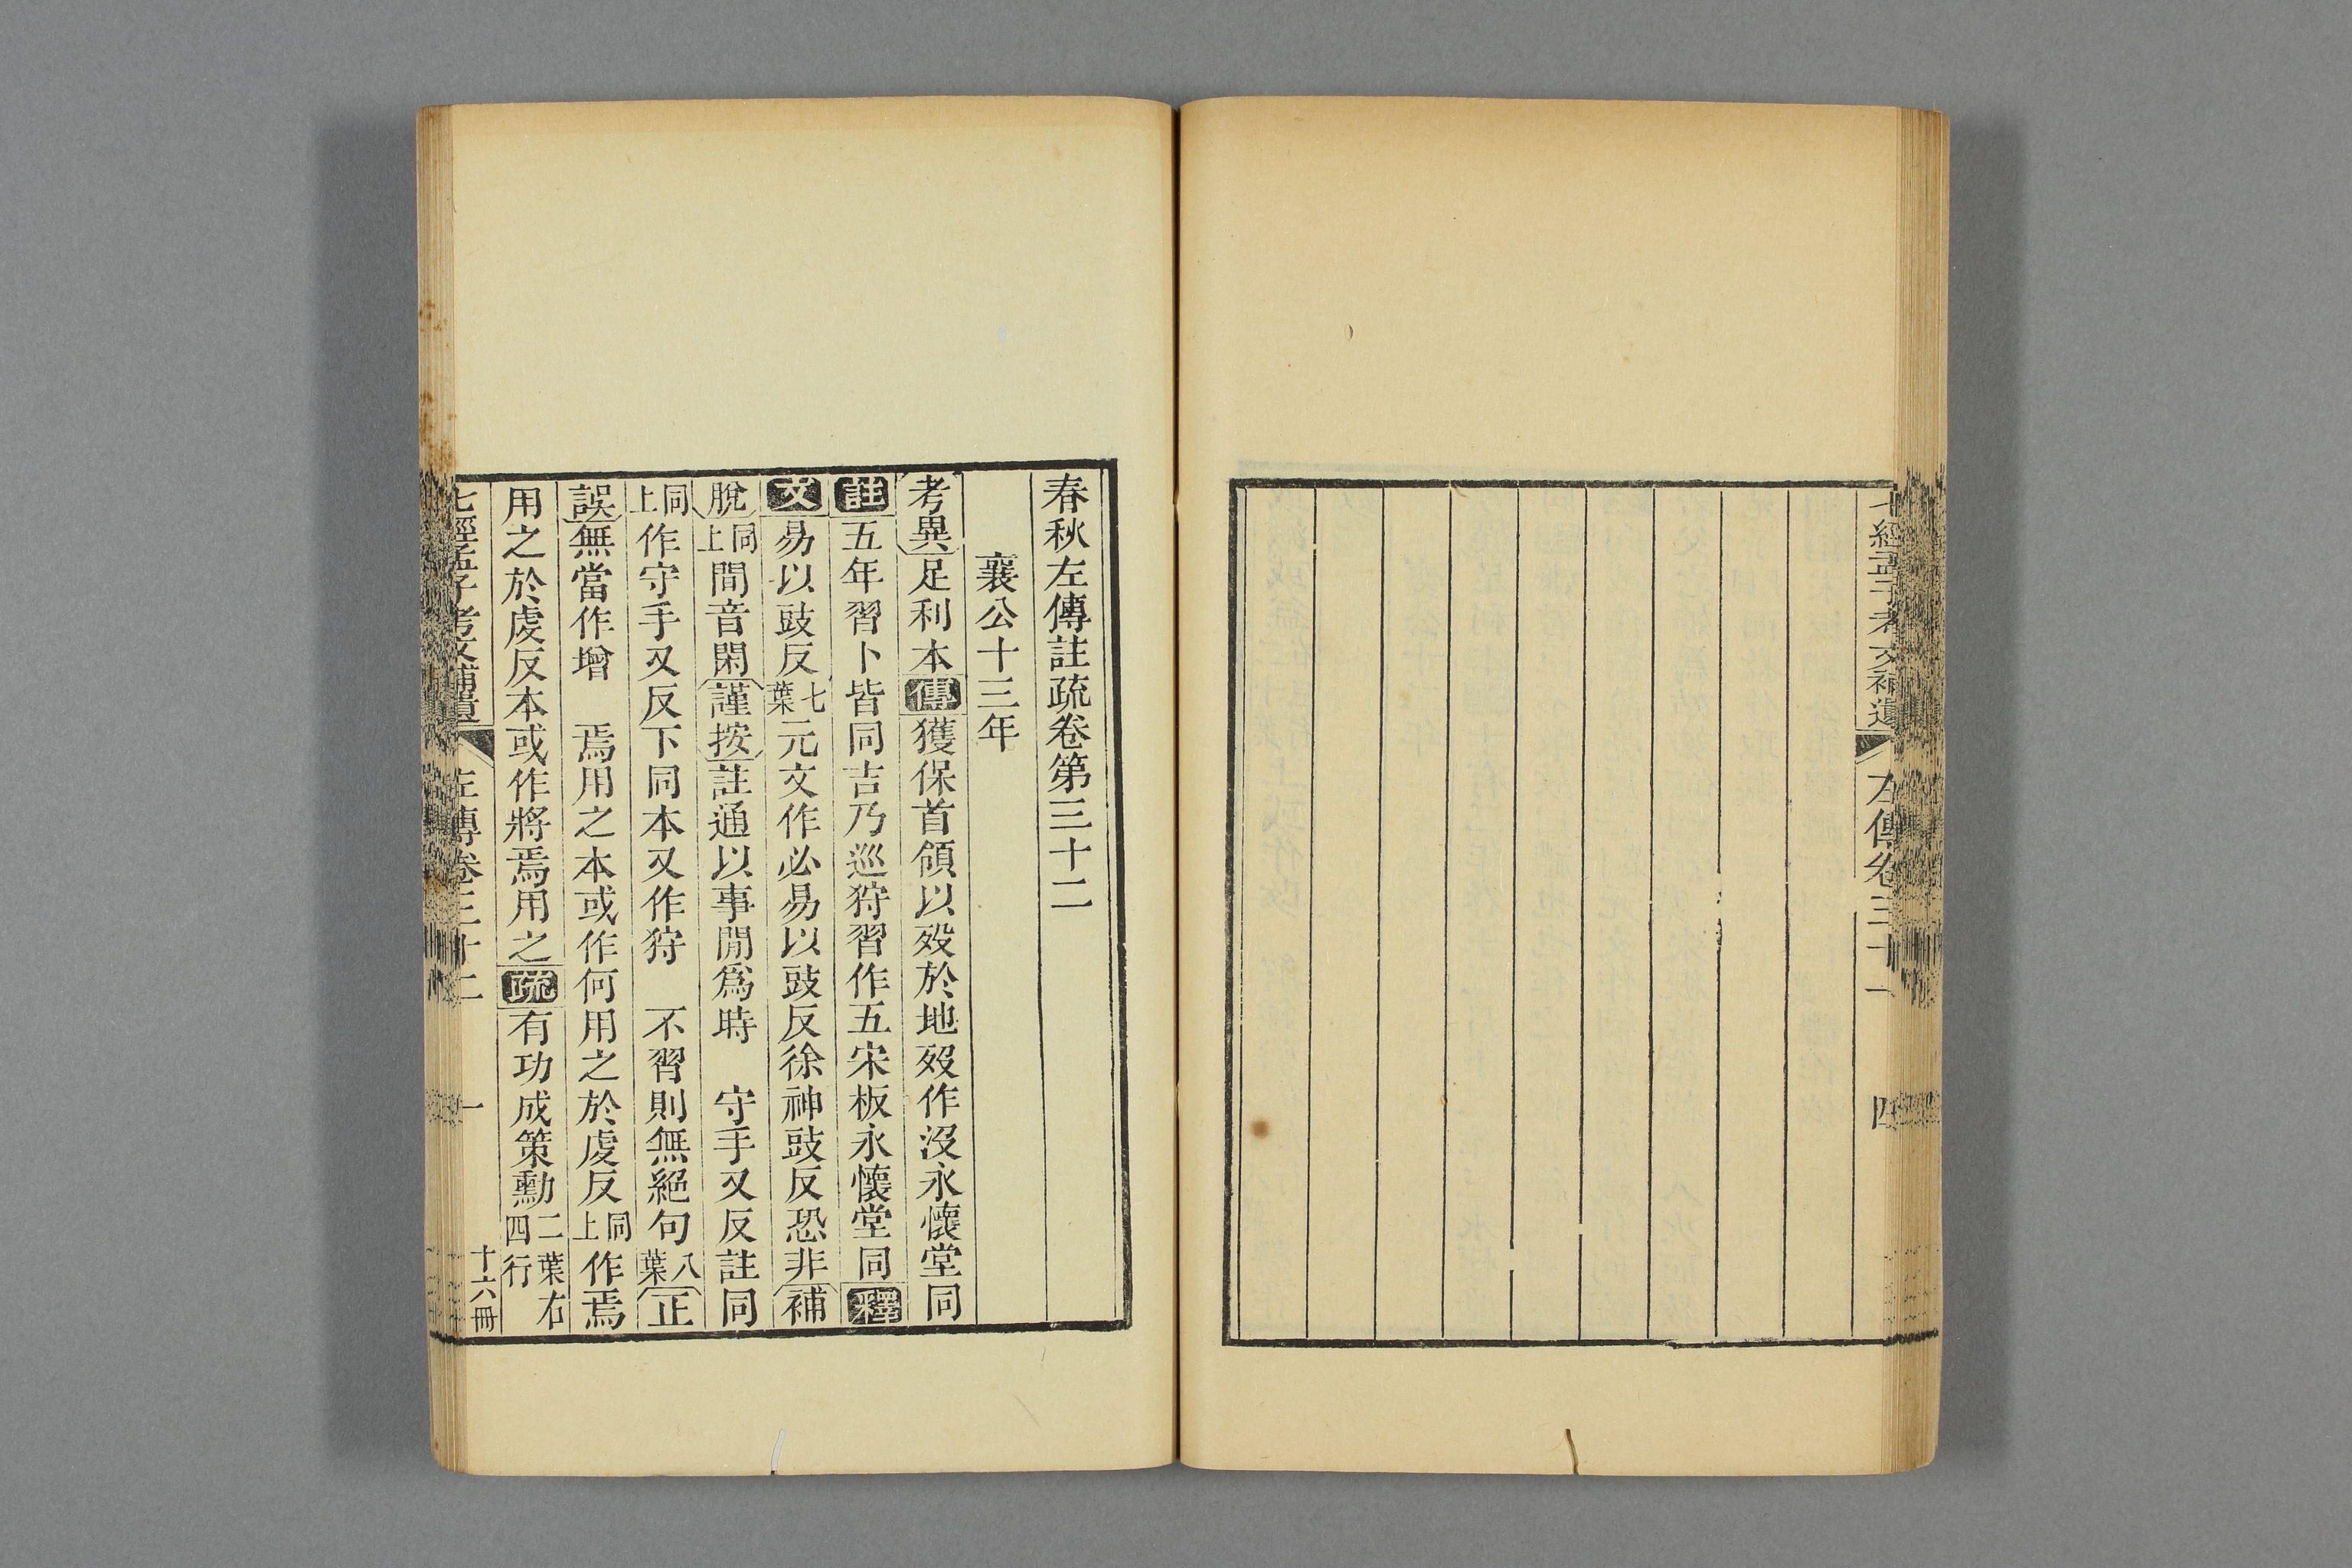 七經孟子考文補遺 左傳卷三十一 四
春秋左傳註疏卷第三十二
襄公十三年
考異足利本傳獲保首領以歿於地歿作沒永懷堂同
註五年習卜皆同吉乃巡狩習作五宋板永懷堂同釋
文易以豉反七葉元文作必易以豉反徐神豉反恐非補
脫同上間音閑謹按註通以事閒爲時 守手又反註同
同上作守手又反下同本又作狩 不習則無絕句八葉正
誤無當作增 焉用之本或作何用之於虔反同上作焉
用之於虔反本或作將焉用之疏有功成策勳二葉右四行
七經孟子考文補遺 左傳卷三十二 一 十六冊